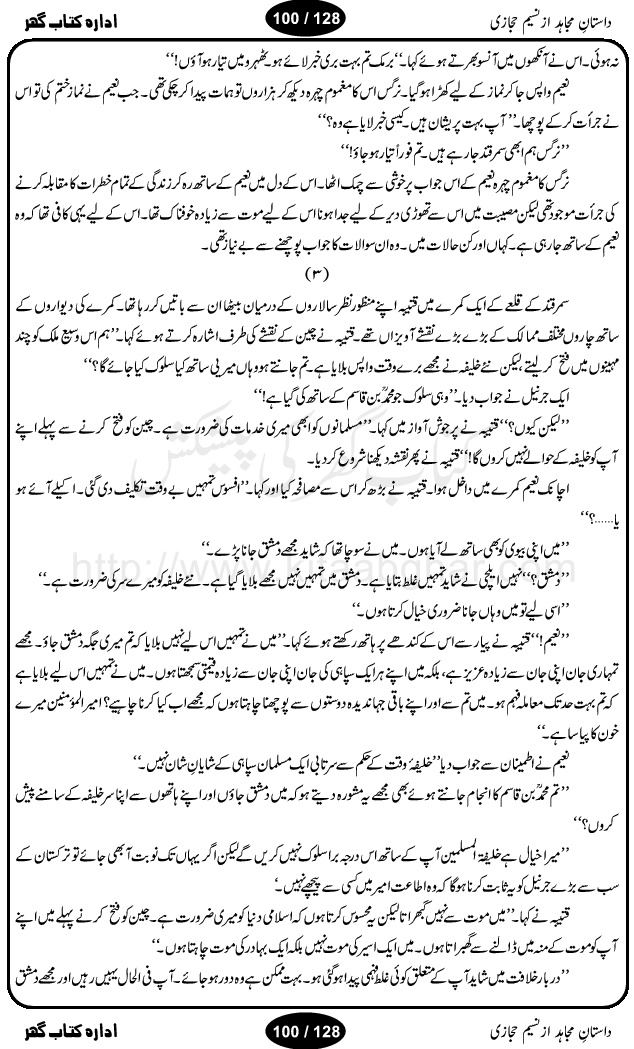 داستانِ مجاہد از نسیم حجازی
100 / 128
ادارہ کتاب گھر
نہ ہوئی۔ اس نے آنکھوں میں آنسو بھرتے ہوئے کہا۔ ’’برمک تم بہت بری خبر لائے ہو۔ ٹھہرو میں تیار ہو آؤں!‘‘
نعیم واپس جا کر نماز کے لیے کھڑا ہو گیا۔ نرگس اس کا مغموم چہرہ دیکھ کر ہزاروں توہمات پیدا کر چکی تھی۔ جب نعیم نے نماز ختم کی تو اس
نے جرأت کر کے پوچھا۔ ’’آپ بہت پریشان ہیں۔ کیسی خبر لایا ہے وہ؟‘‘
’’نرگس ہم ابھی سمرقند جا رہے ہیں۔ تم فوراً تیار ہو جاؤ!‘‘
نرگس کا مغموم چہرہ نعیم کے اس جواب پر خوشی سے چمک اٹھا۔ اس کے دل میں نعیم کے ساتھ رہ کر زندگی کے تمام خطرات کا مقابلہ کرنے
کی جرأت موجود تھی لیکن مصیبت میں اس سے تھوڑی دیر کے لیے جدا ہونا اس کے لیے موت سے زیادہ خوفناک تھا۔ اس کے لیے یہی کافی تھا کہ وہ
نعیم کے ساتھ جا رہی ہے۔ کہاں اور کن حالات میں۔ وہ ان سوالات کا جواب پوچھنے سے بے نیاز تھی۔
(۳)
سمرقند کے قلعے کے ایک کمرے میں قتیبہ اپنے منظور نظر سالاروں کے درمیان بیٹھا ان سے باتیں کر رہا تھا۔ کمرے کی دیواروں کے
ساتھ چاروں مختلف ممالک کے بڑے بڑے نقشے آویزاں تھے۔ قتیبہ نے چین کے نقشے کی طرف اشارہ کرتے ہوئے کہا۔ ’’ہم اس وسیع ملک کو چند
مہینوں میں فتح کر لیتے، لیکن نئے خلیفہ نے مجھے برے وقت واپس بلایا ہے۔ تم جانتے ہو وہاں میری ساتھ کیا سلوک کیا جائے گا؟‘‘
ایک جرنیل نے جواب دیا۔ ’’وہی سلوک جو محمدؒ بن قاسم کے ساتھ کی گیا ہے!‘‘
’’لیکن کیوں؟‘‘ قتیبہ نے پر جوش آواز میں کہا۔ ’’مسلمانوں کو ابھی میری خدمات کی ضرورت ہے۔ چین کو فتح کرنے سے پہلے اپنے
آپ کو خلیفہ کے حوالے نہیں کروں گا!‘‘ قتیبہ نے پھر نقشہ دیکھنا شروع کر دیا۔
اچانک نعیم کمرے میں داخل ہوا۔ قتیبہ نے بڑھ کر اس سے مصافحہ کیا اور کہا۔ ’’افسوس تمہیں بے وقت تکلیف دی گئی۔ اکیلے آئے ہو
یا……؟‘‘
’’میں اپنی بیوی کو بھی ساتھ لے آیا ہوں۔ میں نے سوچا تھا کہ شاید مجھے دمشق جانا پڑے۔‘‘
’’دمشق؟‘‘ نہیں ایلچی نے شاید تمہیں غلط بتایا ہے۔ دمشق میں تمہیں نہیں مجھے بلایا گیا ہے۔ نئے خلیفہ کو میرے سر کی ضرورت ہے۔‘‘
’’اسی لیے تو میں وہاں جانا ضروری خیال کرتا ہوں۔‘‘
’’نعیم!‘‘ قتیبہ نے پیار سے اس کے کندھے پر ہاتھ رکھتے ہوئے کہا۔ ’’میں نے تمہیں اس لیے نہیں بلایا کہ تم میری جگہ دمشق جاؤ۔ مجھے
تمہاری جان اپنی جان سے زیادہ عزیز ہے، بلکہ میں اپنے ہر ایک سپاہی کی جان اپنی جان سے زیادہ قیمتی سمجھتا ہوں۔ میں نے تمہیں اس لیے بلایا ہے
کہ تم بہت حد تک معاملہ فہم ہو۔ میں تم سے اور اپنے باقی جہاندیدہ دوستوں سے پوچھنا چاہتا ہوں کہ مجھے اب کیا کرنا چاہیے؟ امیر المؤمنین میرے
خون کا پیاسا ہے۔‘‘
نعیم نے اطمینان سے جواب دیا ’’خلیفۂ وقت کے حکم سے سرتابی ایک مسلمان سپاہی کے شایانِ شان نہیں۔‘‘
’’تم محمدؒ بن قاسم کا انجام جانتے ہوئے بھی مجھے یہ مشورہ دیتے ہو کہ میں دمشق جاؤں اور اپنے ہاتھوں سے اپنا سر خلیفہ کے سامنے پیش
کروں؟‘‘
’’میرا خیال ہے خلیفۃ المسلمین آپ کے ساتھ اس درجہ برا سلوک نہیں کریں گے لیکن اگر یہاں تک نوبت آ بھی جائے تو ترکستان کے
سب سے بڑے جرنیل کو یہ ثابت کرنا ہو گا کہ وہ اطاعت امیر میں کسی سے پیچھے نہیں۔‘
قتیبہ نے کہا۔ ’’میں موت سے نہیں گھبراتا لیکن یہ محسوس کرتا ہوں کہ اسلامی دنیا کو میری ضرورت ہے۔ چین کو فتح کرنے پہلے میں اپنے
آپ کو موت کے منہ میں ڈالنے سے گھبراتا ہوں۔ میں ایک اسیر کی موت نہیں بلکہ ایک بہادر کی موت چاہتا ہوں۔‘‘
’’دربار خلافت میں شاید آپ کے متعلق کوئی غلط فہمی پیدا ہو گئی ہو۔ بہت ممکن ہے وہ دور ہو جائے۔ آپ فی الحال یہیں رہیں اور مجھے دمشق
کتاب گھر کی پیشکش
http://www.kitaabghar.com
داستانِ مجاہد از نسیم حجازی
100 / 128
ادارہ کتاب گھر